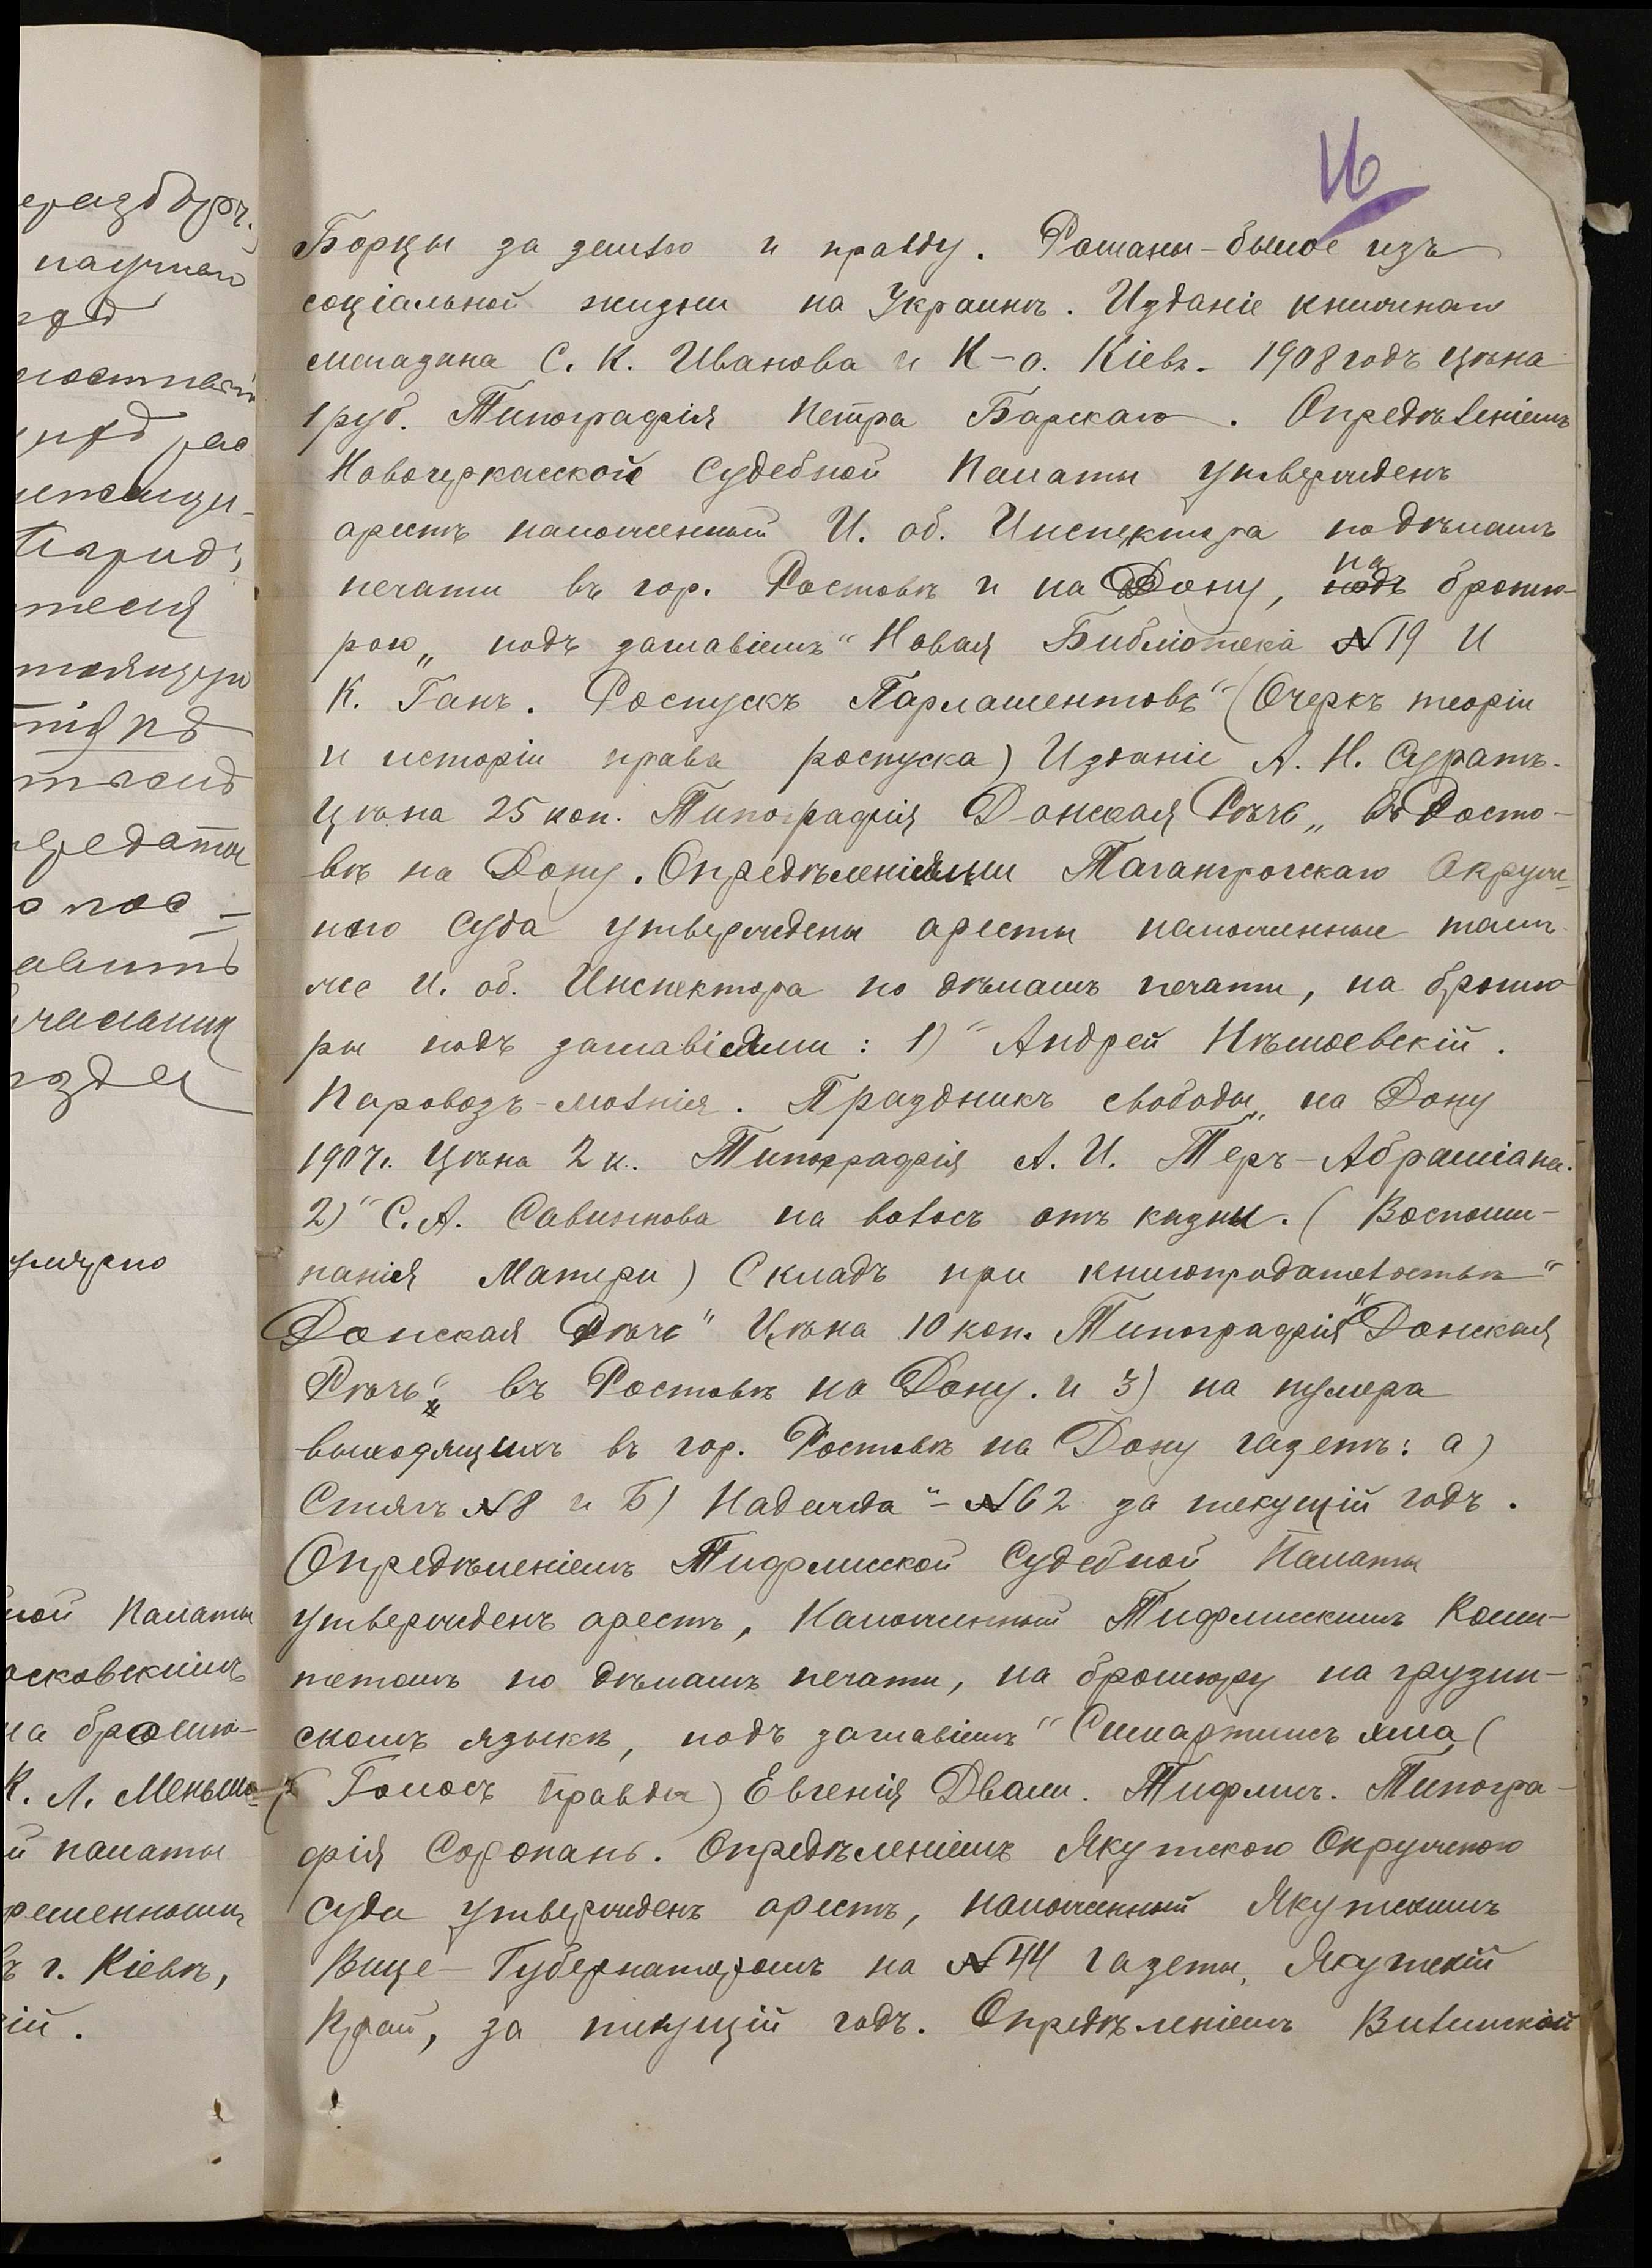 16
Борцы за землю и правду. Романы-былое изъ
соціальной жизни на Украинѣ. Изданіе книжнаго
магазина С. К. Иванова и К-о. Кіевъ. 1908 годъ Цѣна
1 руб. Типографія Петра Барскаго. Опредѣленіемъ
Новочеркасской Судебной Палаты утвержденъ
арестъ наложенный И. об. Инспектора по дѣламъ
печати въ гор. Ростовѣ и на Дону, на брошю-
рою „ подъ заглавіемъ “ Новая Библіотека №19 И
К. Ганъ. Роспускъ Парламентовъ“ (Очеркъ теоріи
и исторіи права роспуска) Изданіе А. Н. Сурать.
Цѣна 25 коп. Типографія Донская Рѣчь „ въ Росто-
вѣ на Дону. Опредѣленіями Таганрогскаго Окруж-
ного Суда утверждены аресты наложенные тамъ
же И. об. Инспектора по дѣламъ печати, на брошю-
ры подъ заглавіями : 1) “ Андрей Нѣмоевскій.
Паровозъ-молнія. Праздникъ свободы „ на Дону
1907г. Цѣна 2 к. Типографія А. И. Теръ-Абраміана.
2) “ С. А. Савинкова на волосъ отъ казни. ( Воспоми-
нанія Матери ) Складъ при книгоиздательствѣ “
Донская Рѣчь“ Цѣна 10 коп. Типографія “Донская
Рѣчь„ въ Ростовѣ на Дону. и 3) на нумера
выходящихъ въ гор. Ростовѣ на Дону газетъ: а)
Стягъ №8 и Б) Надежда “ - №62 за текущій годъ.
Опредѣленіемъ Тифлисской Судебной Палаты
утвержденъ арестъ, Наложенный Тифлисскимъ Коми-
тетомъ по дѣламъ печати, на брошюру на грузин-
скомъ языкѣ, подъ заглавіемъ “ Симартлисъ хма (
( Голосъ Правды ) Евгенія Двали. Тифлисъ. Типогра-
фія Соропань. Опредѣленіемъ Якутскою Окружного
Суда утвержденъ арестъ, наложенный Якутскимъ
Вице-Губернаторомъ на №44 газеты, Якутскій
Край, за текущій годъ. Опредѣленіемъ Виленской
ной Палаты
осковскимъ
на брошю-
К. Л. Меньшо-
й палаты
ременными
ъ г. Кіевѣ,
ій.